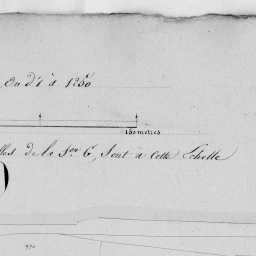 ou d'1 à 1250
150 metres
lles de la Son C, Sont à cette Echelle